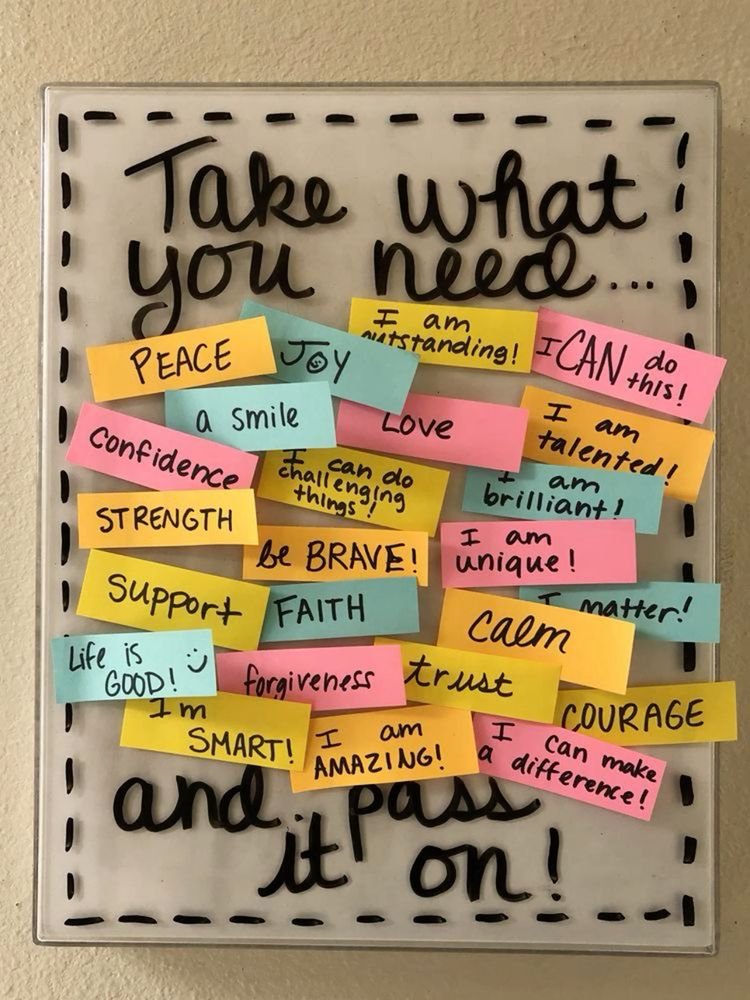 Take what
you need...
PEACE
JOY
I am
outstanding!
I CAN do
this!
a smile
Love
I am
talented!
Confidence
I can do
challenging
things!
I am
brilliant!
STRENGTH
be BRAVE!
I am
unique!
Support
FAITH
Calm
I matter!
Life is
GOOD!
forgiveness
trust
COURAGE
I'm
SMART!
I am
AMAZING!
I can make
a difference!
and pass
it on!